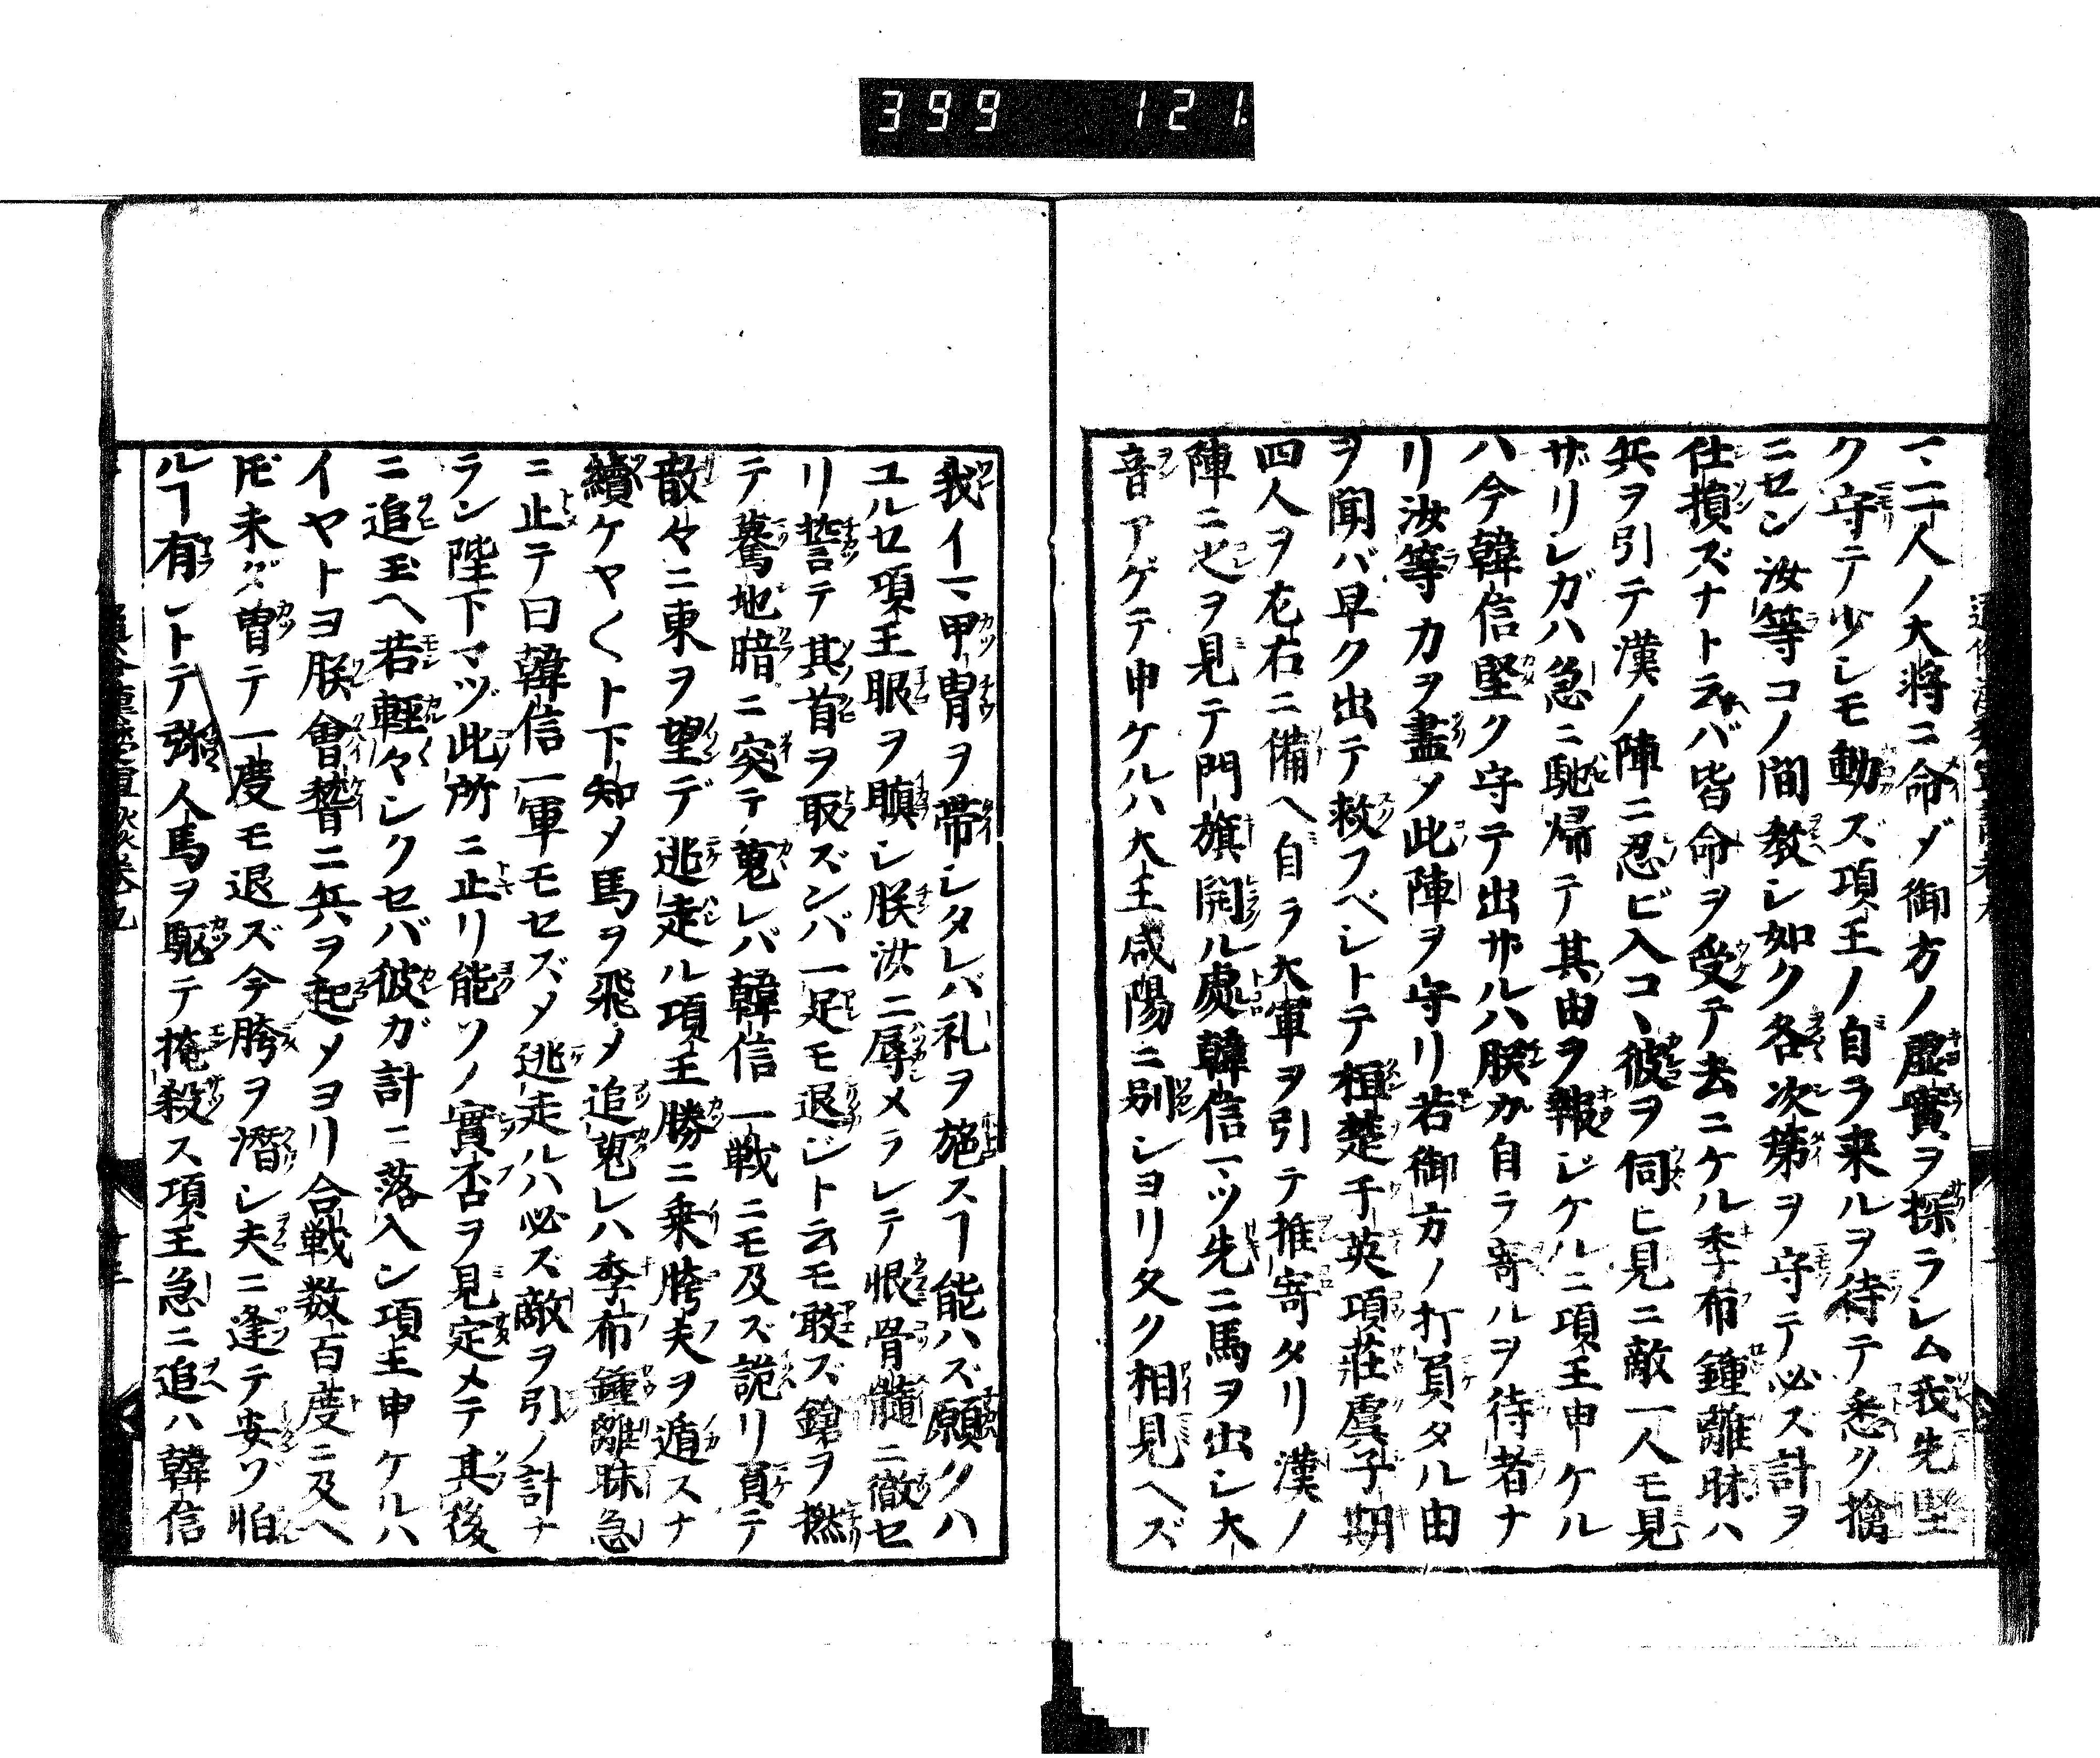 399 121
一二人ノ大将ニ命ゾ御方ノ虚實ヲ探ラレム我先堅
ク守テ少シモ動ズ項王ノ自ラ来ルヲ待テ悉ク擒
ニセン汝等コノ間教シ如ク各次第ヲ守テ必ス計ヲ
仕損ズナト云バ皆命ヲ受テ去ニケル季布鍾離昧ハ
兵ヲ引テ漢ノ陣ニ忍ビ入コヽ彼ヲ伺ヒ見ニ敵一人モ見
ザリシガハ急ニ馳帰テ其由ヲ報ジケルニ項王申ケル
ハ今韓信堅ク守テ出サルハ朕カ自ラ寄ルヲ待者ナ
リ汝等カヲ盡メ此陣ヲ守リ若御方ノ打負タル由
ヲ聞バ早ク出テ救フベシトテ桓楚于英項莊虞子期
四人ヲ左右ニ備ヘ自ラ大軍ヲ引テ推寄タリ漢ノ
陣ニ之ヲ見テ門旗開ル處韓信一ツ先ニ馬ヲ出シ大
音アゲテ申ケルハ大王咸陽ニ別シヨリ久ク相見ヘズ
我イマ甲冑ヲ帯シタレバ礼ヲ施スヿ能ハズ願クハ
ユルセ項王眼ヲ瞋シ朕汝ニ辱メラレテ恨骨髓ニ徹セ
リ誓テ其首ヲ取ズンバ一足モ退ジト云モ敢ズ鎗ヲ撚
テ驀地暗ニ突テ蒐レバ韓信一戦ニモ及ズ詭リ負テ
散々ニ東ヲ望デ逃走ル項王勝ニ乗胯夫ヲ遁スナ
續ケヤ〱ト下知メ馬ヲ飛メ追蒐レハ季布鍾離昧急
ニ止テ曰韓信一軍モセズメ逃走ルハ必ズ敵ヲ引ノ計ナ
ラン陛下マヅ此所ニ止リ能ソノ實否ヲ見定メテ其後
ニ追玉ヘ若輕々シクセバ彼ガ計ニ落入ン項王申ケルハ
イヤトヨ朕會稽ニ兵ヲ起メヨリ合戦数百度ニ及ヘ
𪜈未ダ曽テ一度モ退ズ今胯ヲ潛シ夫ニ逢テ安ゾ怕
ルヿ有ントテ弥人馬ヲ駈テ掩殺ス項王急ニ追ハ韓信